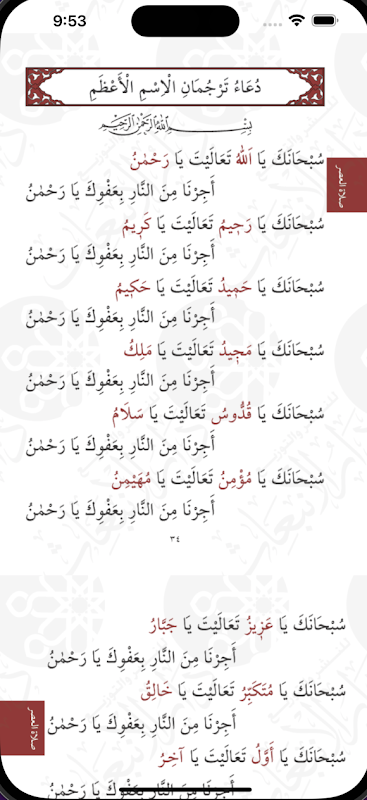 9:53
دُعَاءُ تَرْجُمَانِ الْاِسْمِ الْأَعْظَمِ
بِسْمِ اللهِ الرَّحْمٰنِ الرَّحِيمِ
سُبْحَانَكَ يَا اَللهُ تَعَالَيْتَ يَا رَحْمٰنُ
صلاة العصر
أَجِرْنَا مِنَ النَّارِ بِعَفْوِكَ يَا رَحْمٰنُ
سُبْحَانَكَ يَا رَحِيمُ تَعَالَيْتَ يَا كَرِيمُ
أَجِرْنَا مِنَ النَّارِ بِعَفْوِكَ يَا رَحْمٰنُ
سُبْحَانَكَ يَا حَمِيدُ تَعَالَيْتَ يَا حَكِيمُ
أَجِرْنَا مِنَ النَّارِ بِعَفْوِكَ يَا رَحْمٰنُ
سُبْحَانَكَ يَا مَجِيدُ تَعَالَيْتَ يَا مَلِكُ
أَجِرْنَا مِنَ النَّارِ بِعَفْوِكَ يَا رَحْمٰنُ
سُبْحَانَكَ يَا قُدُّوسُ تَعَالَيْتَ يَا سَلَامُ
أَجِرْنَا مِنَ النَّارِ بِعَفْوِكَ يَا رَحْمٰنُ
سُبْحَانَكَ يَا مُؤْمِنُ تَعَالَيْتَ يَا مُهَيْمِنُ
أَجِرْنَا مِنَ النَّارِ بِعَفْوِكَ يَا رَحْمٰنُ
٣٤
سُبْحَانَكَ يَا عَزِيزُ تَعَالَيْتَ يَا جَبَّارُ
أَجِرْنَا مِنَ النَّارِ بِعَفْوِكَ يَا رَحْمٰنُ
سُبْحَانَكَ يَا مُتَكَبِّرُ تَعَالَيْتَ يَا خَالِقُ
أَجِرْنَا مِنَ النَّارِ بِعَفْوِكَ يَا رَحْمٰنُ
صلاة العصر
سُبْحَانَكَ يَا أَوَّلُ تَعَالَيْتَ يَا آخِرُ
أَجِرْنَا مِنَ النَّارِ بِعَفْوِكَ يَا رَحْمٰنُ